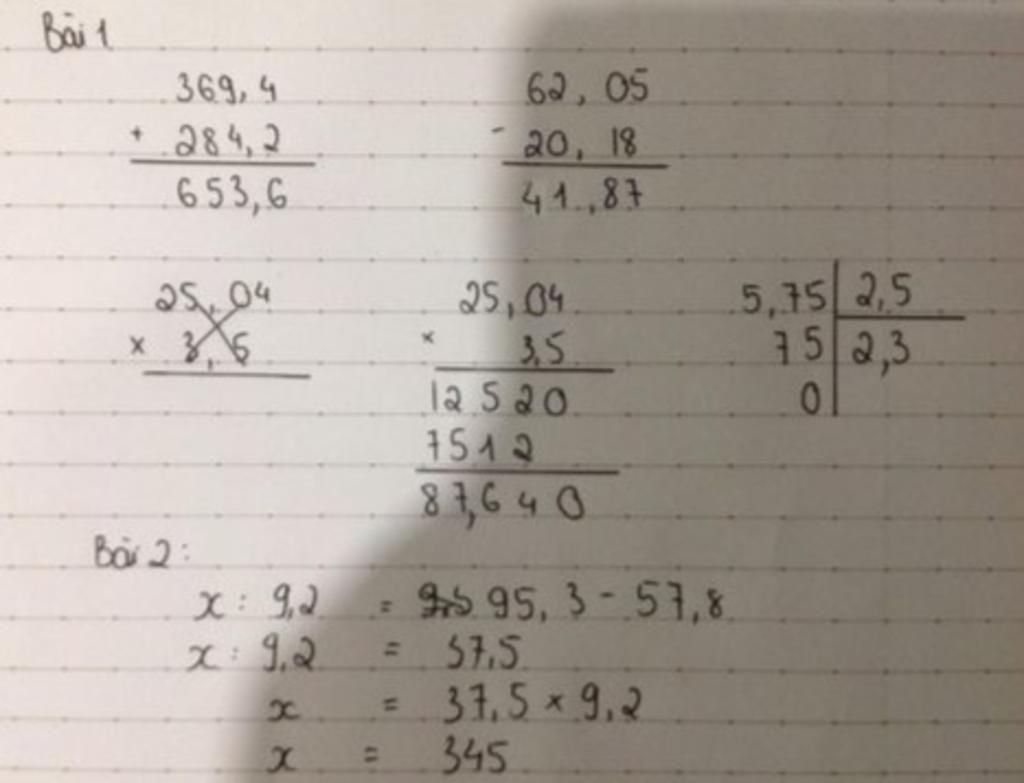 Bài 1
369,4 62,05
+ 284,2 - 20,18
653,6 41,87
25,04 25,04 5,75 2,5
× 3,5 × 3,5 75 2,3
12520 0
7512
87,640
Bài 2:
x : 9,2 = 95,3 - 57,8
x : 9,2 = 37,5
x = 37,5 × 9,2
x = 345